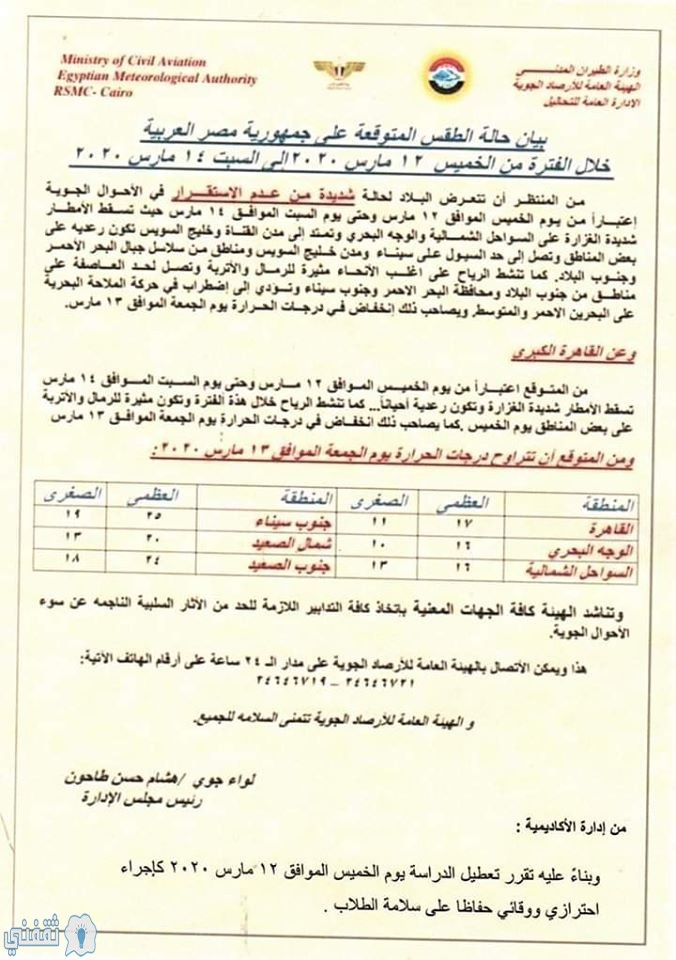 Ministry of Civil Aviation
Egyptian Meteorological Authority
RSMC- Cairo
وزارة الطيران المدنى
الهيئة العامة للأرصاد الجوية
الادارة العامة للتحاليل
بيان حالة الطقس المتوقعة على جمهورية مصر العربية
خلال الفترة من الخميس ١٢ مارس ٢٠٢٠ إلى السبت ١٤ مارس ٢٠٢٠
من المنتظر أن تتعرض البلاد لحالة شديدة من عدم الاستقرار في الأحوال الجوية
إعتباراً من يوم الخميس الموافق ١٢ مارس وحتى يوم السبت الموافق ١٤ مارس حيث تسقط الأمطار
شديدة الغزارة على السواحل الشمالية والوجه البحري وتمتد إلى مدن القناة وخليج السويس تكون رعديه على
بعض المناطق وتصل إلى حد السيول على سيناء ومدن خليج السويس ومناطق من سلاسل جبال البحر الأحمر
وجنوب البلاد. كما تنشط الرياح على اغلب الأنحاء مثيرة للرمال والأتربة وتصل لحد العاصفة على
مناطق من جنوب البلاد ومحافظة البحر الاحمر وجنوب سيناء وتؤدي إلى إضطراب في حركة الملاحة البحرية
على البحرين الاحمر والمتوسط. ويصاحب ذلك إنخفاض في درجات الحرارة يوم الجمعة الموافق ١٣ مارس.
وعن القاهرة الكبرى
من المتوقع اعتباراً من يوم الخميس الموافق ١٢ مارس وحتى يوم السبت الموافق ١٤ مارس
تسقط الأمطار شديدة الغزارة وتكون رعدية أحياناً... كما تنشط الرياح خلال هذة الفترة وتكون مثيرة للرمال والأتربة
على بعض المناطق يوم الخميس .كما يصاحب ذلك انخفاض في درجات الحرارة يوم الجمعة الموافق ١٣ مارس
ومن المتوقع أن تتراوح درجات الحرارة يوم الجمعة الموافق ١٣ مارس ٢٠٢٠:
المنطقة العظمى الصغرى المنطقة العظمى الصغرى
القاهرة ١٧ ١١ جنوب سيناء ٢٥ ١٩
الوجه البحري ١٦ ١٠ شمال الصعيد ٢٠ ١٣
السواحل الشمالية ١٦ ١٣ جنوب الصعيد ٢٤ ١٨
وتناشد الهيئة كافة الجهات المعنية بإتخاذ كافة التدابير اللازمة للحد من الآثار السلبية الناجمه عن سوء
الأحوال الجوية.
هذا ويمكن الأتصال بالهيئة العامة للأرصاد الجوية على مدار الـ ٢٤ ساعة على أرقام الهاتف الأتية:
٢٤٦٤٦٧٢١ – ٢٤٦٤٦٧١٩
و الهيئة العامة للأرصاد الجوية تتمنى السلامه للجميع.
لواء جوي /هشام حسن طاحون
رئيس مجلس الإدارة
من إدارة الأكاديمية :
وبناءً عليه تقرر تعطيل الدراسة يوم الخميس الموافق ١٢ مارس ٢٠٢٠ كإجراء
احترازي ووقائي حفاظا على سلامة الطلاب .
ثقفني